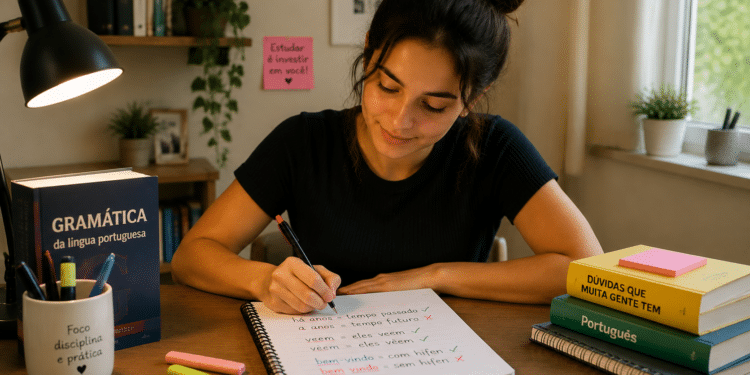 Estudar
é investir
em você!
GRAMÁTICA
da língua portuguesa
Foco
disciplina
e prática
há anos = tempo passado ✓
a anos = tempo futuro ✗
veem = eles veem ✓
vêem = eles veem ✓
bem vindo = com hífen ✓
bem vindo = sem hífen ✗
DÚVIDAS QUE
MUITA GENTE TEM
Português